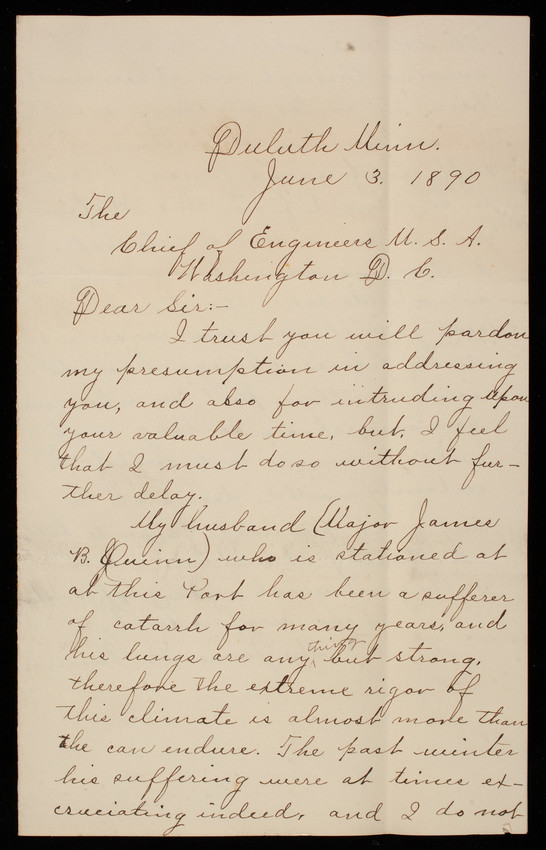 Duluth Minn.
June 3. 1890
The
Chief of Engineers U. S. A.
Washington D. C.
Dear Sir:-
I trust you will pardon
my presumption in addressing
you, and also for intruding upon
your valuable time, but, I feel
that I must do so without fur-
ther delay.
My husband (Major James
B. Quinn) who is stationed at
at this Port has been a sufferer
of catarrh for many years, and
his lungs are any thing but strong,
therefore the extreme rigor of
this climate is almost more than
the can endure. The past winter
his suffering were at times ex-
cruciating indeed, and I do not